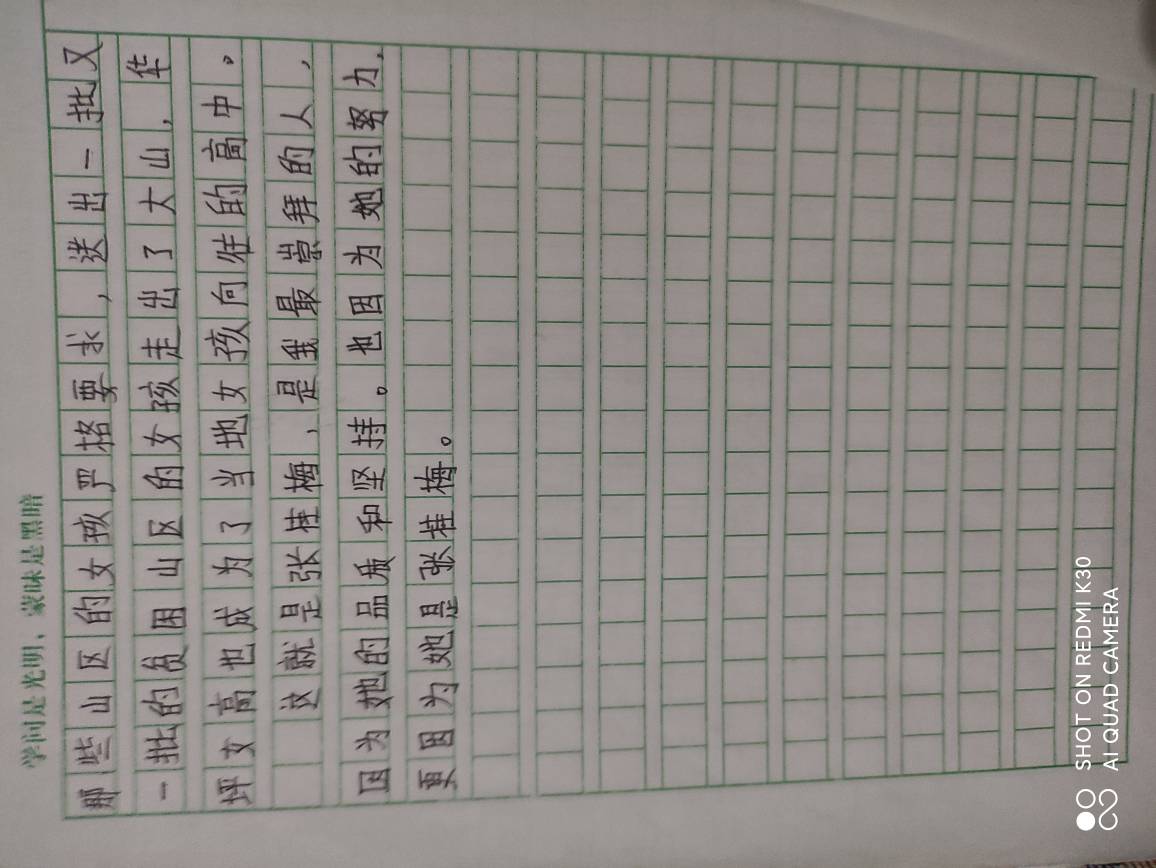 学问是光明，蒙昧是黑暗
那些山区的女孩严格要求，送出一批又
一批的贫困山区的女孩走出了大山，华
坪女高也成为了当地女孩向往的高中。
这就是张桂梅，是我最崇拜的人，
因为她的品质和坚持。也因为她的努力，
更因为她是张桂梅。
SHOT ON REDMI K30
AI QUAD CAMERA